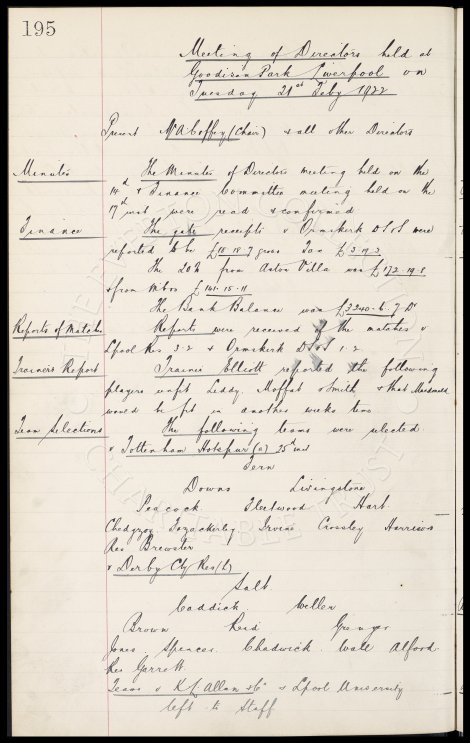 195
Meeting of Directors held at
Goodison Park Liverpool on
Tuesday 21st Feby 1922
Present Mr A Coffey (Chair) & all other Directors
Minutes The Minutes of Directors meeting held on the
14th & Finance Committee meeting held on the
17th inst were read & confirmed
Finance The gate receipts v Ormskirk D.S.S were
reported to be £18.18.7 gross Tax £3.9.3
The 20% from Aston Villa was £172.19.8
& from Mboro £141.15.11
The Bank Balance was £3240.6.7 Dr
Reports of Matches Reports were received of the matches v
Lpool Res 3-2 & Ormskirk D.S.S 1-2
Trainers Report Trainer Elliott reported the following
players unfit Leddy, Moffat & Smith & that Macdonald
would be fit in another weeks time
Team Selections The following teams were selected
v Tottenham Hotspur (a) 25th inst
Fern
Downs Livingstone
Peacock Fleetwood Hart
Chedgzoy Fazackerley Irvine Crossley Harrison
Res Brewster
v Derby Cty Res (h)
Salt
Caddick Weller
Brown Reid Grenyer
Jones Spencer Chadwick Wall Alford
Res Garrett
Teams v K.C. Allan & Co & Lpool University
left to Staff